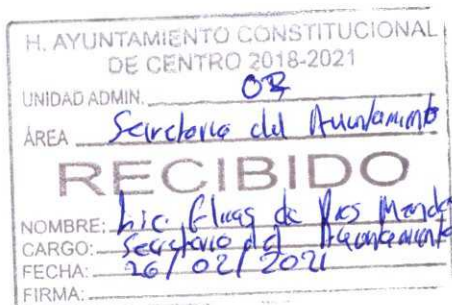 H. AYUNTAMIENTO CONSTITUCIONAL
DE CENTRO 2018-2021
UNIDAD ADMIN. 02
ÁREA Secretaria del Ayuntamiento
RECIBIDO
NOMBRE: Lic. de Mendo
CARGO: Secretario del Ayuntamiento
FECHA: 26/02/2021
FIRMA: